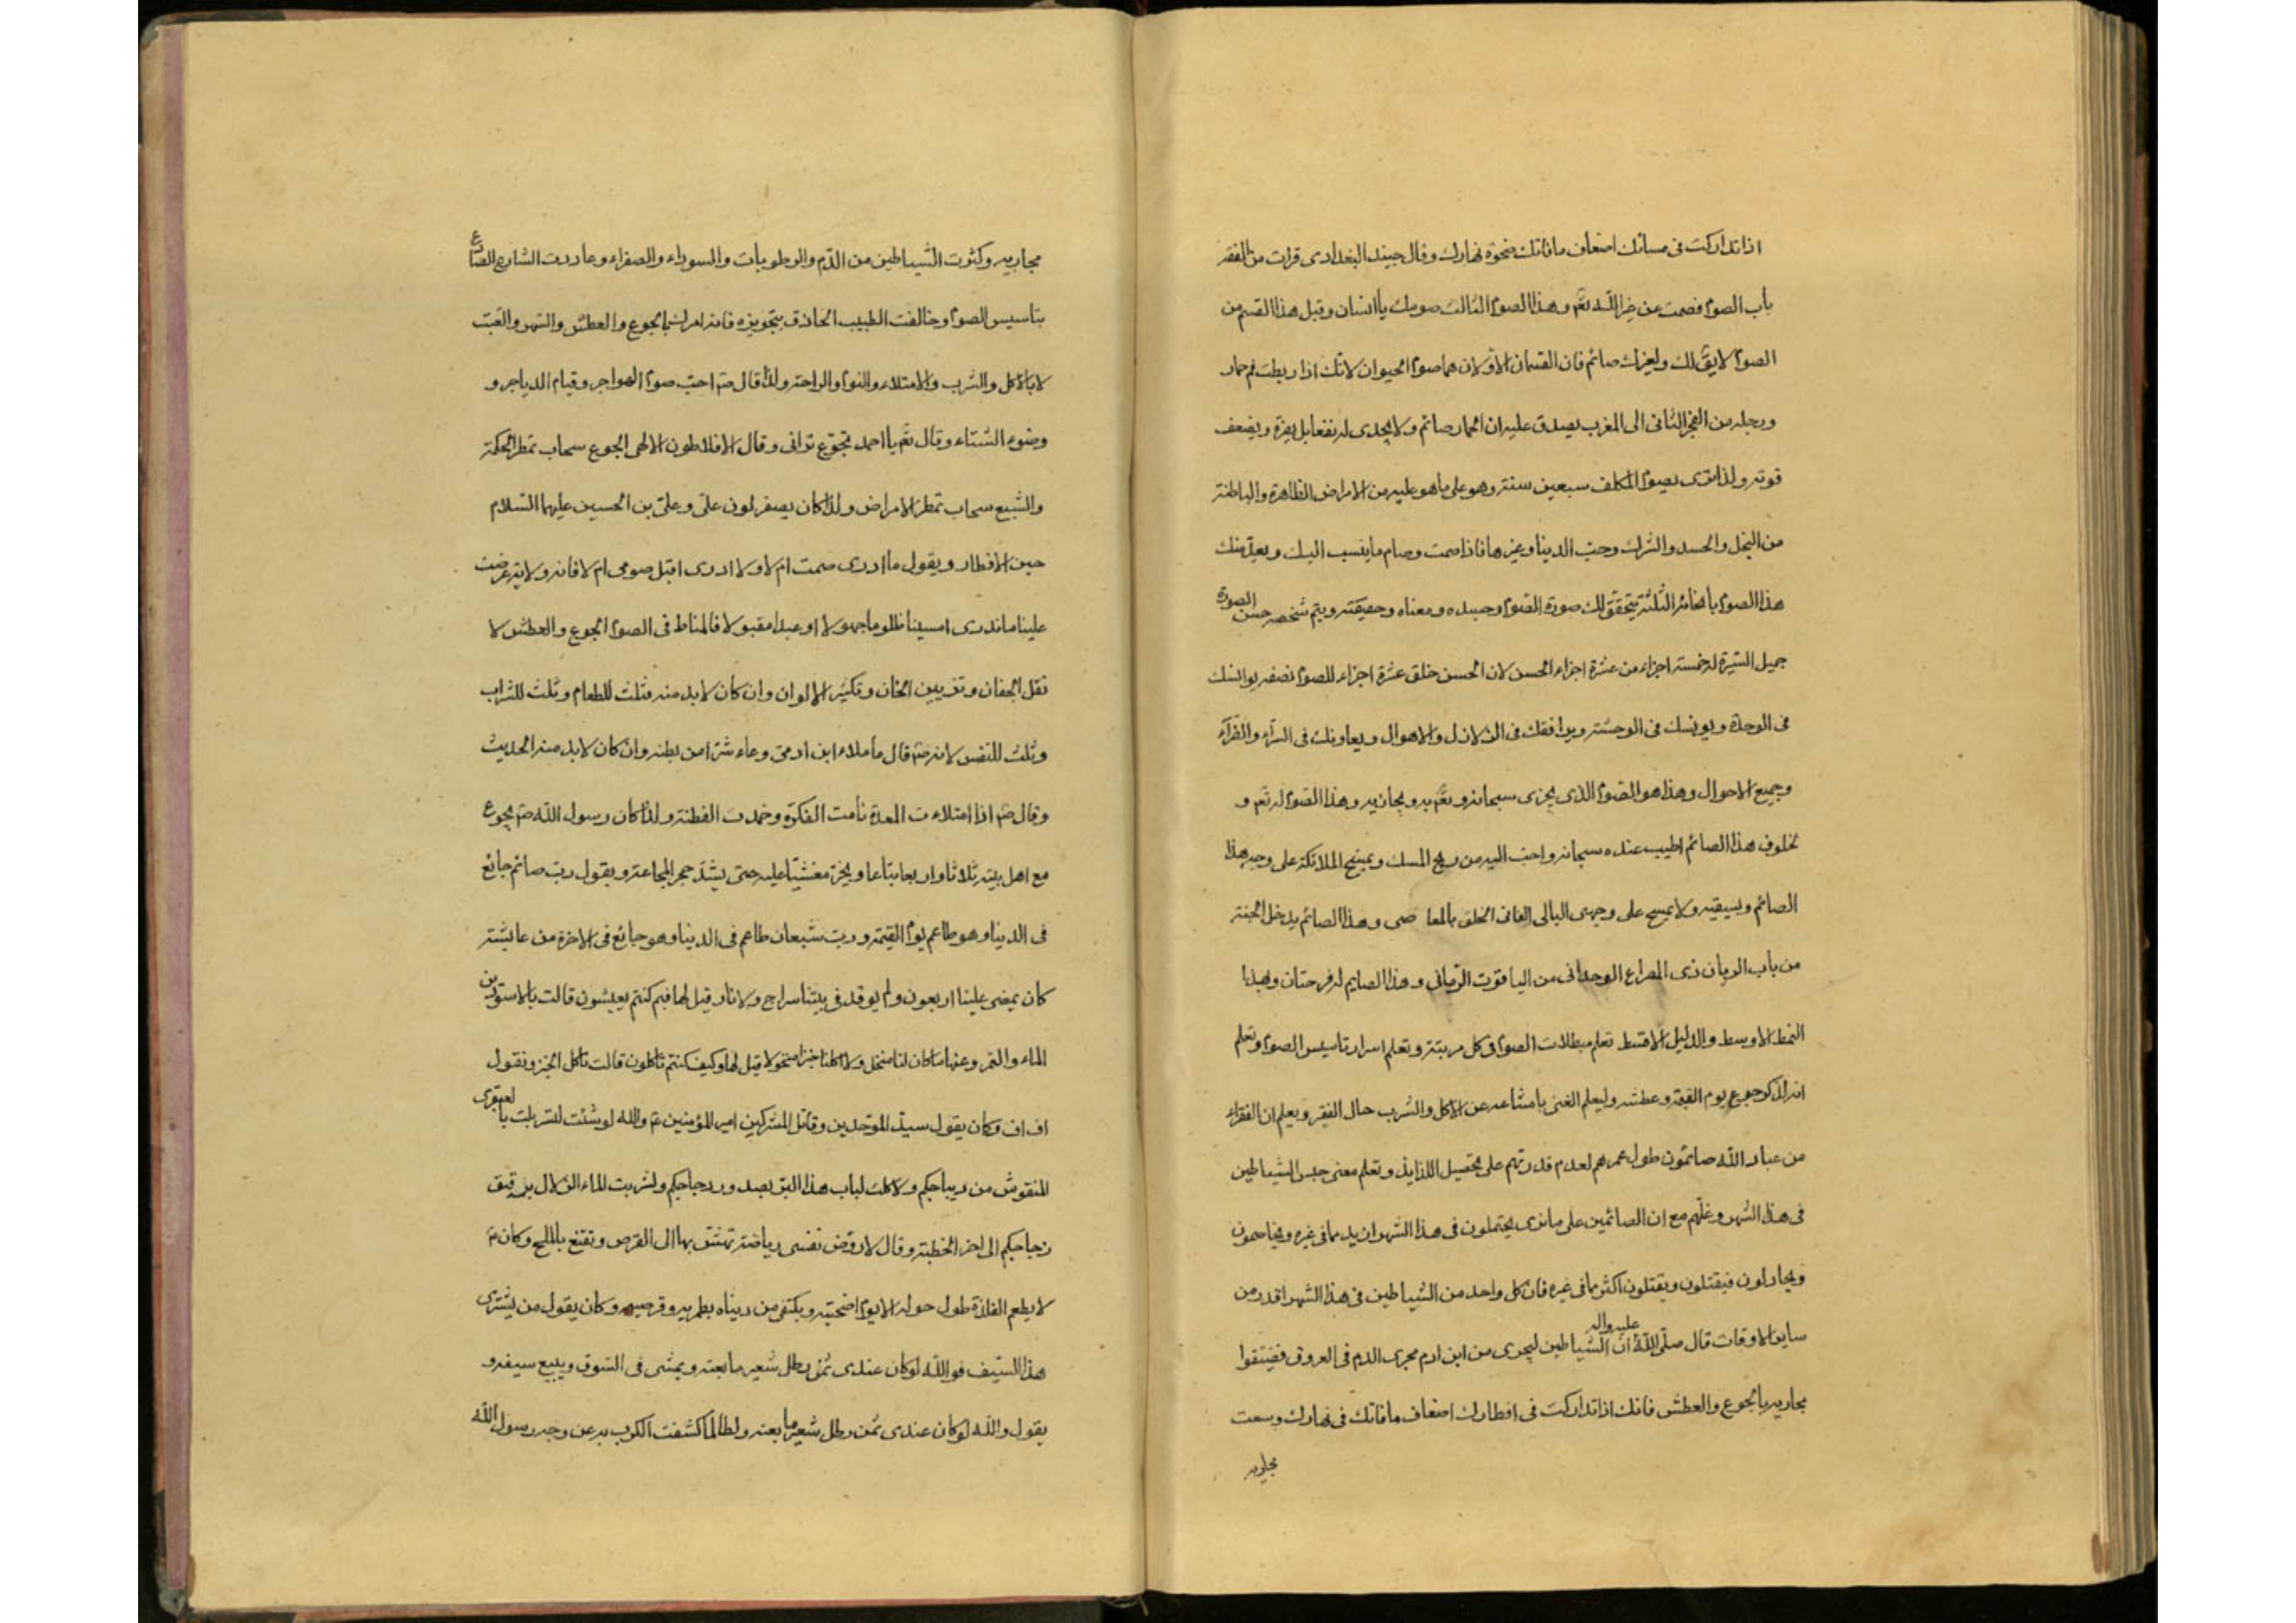 اذا تداركت فى مسائك اضعاف مافاتك ضحوة نهارك وقال جنيد البغدادى قرات من الفقه
باب الصوم فصمت عن غير اللّه تعم وهذا الصوم الثالث صومك ياانسان وقبل هذا القسم من
الصوم لايق لك ولغيرك صائم فان القسمان الاولان هما صوم الحيوان لانك اذا ربطت فم حمار
ورجله من الفجر الثانى الى المغرب يصدق عليه ان الحمار صائم ولا يجدى له نفعا بل يضره ويضعف
قوته ولذا ترى يصوم المكلف سبعين سنة وهو على ماهو عليه من الامراض الظاهرة والباطنة
من البخل والحسد والشرك وحب الدينا وغيرها فاذا صمت وصام ماينسب اليك ويعد منك
هذا الصوم باقسامه الثلثة يتحقق لك صورة الصوم وجسده ومعناه وحقيقته ويتم شخصه حسن الصورة
جميل السّيرة له خمسة اجزاء من عشرة اجزاء الحسن لان الحسن خلق عشرة اجزاء للصوم نصفه يوانسك
فى الوحدة ويونسك فى الوحشة ويوافقك فى الزلازل والاهوال ويعاونك فى السرّاء والضرّاء
وجميع الاحوال وهذا هو الصوم الذى يجزى سبحانه وتعم به ويجازيه وهذا الصوم له تعم و
لخلوف هذا الصائم اطيب عنده سبحانه واحب اليه من ريح المسك ويمسح الملائكة على وجه هذا
الصائم ويسقيه ولا يمسح على وجهى البالى الفانى الخلق بالمعا صى وهذا الصائم يدخل الجنة
من باب الريان ذى المصراع الوحدانى من الياقوت الرّمانى وهذا الصايم له فرحتان وبهذا
النمط الاوسط والدليل الاقسط تعلم مبطلات الصوم فى كل مرتبة وتعلم اسرار تاسيس الصوم وتعلم
انه لذكر جوع يوم القيمة وعطشه وليعلم الغنى بامتناعه عن الاكل والشرب حال الفقير ويعلم ان الفقراء
من عباد اللّه صائمون طول عمرهم لعدم قدرتهم على تحصيل اللذايذ وتعلم معنى حبس الشياطين
فى هذا الشهر وغلّهم مع ان الصائمين على مانرى يحتملون فى هذا الشهر ازيد مما فى غيره ويخاصمون
ويجادلون فيقتلون ويقتلون اكثر مما فى غيره فان كل واحد من الشياطين فى هذا الشهر اقدر من
ساير الاوقات قال صلّى اللّه عليه واله انّ الشياطين ليجرى من ابن ادم مجرى الدم فى العروق فضيّقوا
مجاريه بالجوع والعطش فانك اذا تداركت فى افطارك اضعاف مافاتك فى نهارك وسعت
مجاريه
مجاريه وكثرت الشياطين من الدّم والرطوبات والسوداء والصفراء وعاددت الشارع الصادع
بتاسيس الصوم وخالفت الطبيب الحاذق بتجويزه فانه امرك بالجوع والعطش والسهر والتعب
لا بالاكل والشرب والامتلاء والنوم والراحة ولذا قال صم احبّ صوم الهواجر وقيام الدياجر و
وضوء الشتاء وقال تعم يااحمد تجوّع ترانى وقال الافلاطون الالهى الجوع سحاب تمطر الحكمة
والشبع سحاب تمطر الامراض ولذا كان يصفر لون علىّ وعلىّ بن الحسين عليهما السّلام
حين الافطار ويقول ماادرى صمت ام لا ولا ادرى اقبل صومى ام لا فانه ولايته عرضت
علينا ماندرى امسينا ظلوما جهولا او عبدا مقبولا فالمناط فى الصوم الجوع والعطش لا
نقل الجفان وتزيين الخان وتكثير الالوان وان كان لابد منه فثلث للطعام وثلث للشراب
وثلث للنفس لانه صم قال ماملاء ابن ادمىّ وعاء شرّا من بطنه وان كان لابد منه الحديث
وقال صم اذا امتلاءت المعدة نامت الفكرة وخمدت الفطنة ولذا كان رسول اللّه صم يجوع
مع اهل بيته ثلاثا واربعا تباعا ويخرّ مغشيّا عليه حتى يشدّ حجر المجاعة ويقول ربّ صائم جايع
فى الدينا وهو طاعم يوم القيمة وربّ شبعان طاعم فى الدينا وهو جايع فى الاخرة من عايشة
كان يمضى علينا اربعون ولم يوقد فى بيتنا سراج ولا نار قيل لها فبم كنتم يعيشون قالت بالاسودين
الماء والتمر وعنها ماكان لنا منخل ولا اكلنا خبزا منخولا قيل لها وكيف كنتم تاكلون قالت ناكل الخبز ونقول
اف اف وكان يقول سيد الموّحدين وقاتل المشركين امير المؤمنين عم واللّه لوشئت لتسربلت بالعبقرى
المنقوش من ديباجكم ولاكلت لباب هذا البرّ بصدور دجاجكم ولشربت الماء الزلال برقيق
زجاجكم الى اخر الخطبة وقال لاروّضن نفسى رياضة تهشّ بها الى القرص وتقنع بالملح وكان عم
لايطعم الفلذة طول حوله الا يوم اضحيته ويكتفى من ديناه بطمريه وقرصيه وكان يقول من يشترى
هذا السّيف فو اللّه لو كان عندى ثمن رطل شعير مابعته ويمشى فى السّوق ويبيع سيفه و
يقول واللّه لو كان عندى ثمن رطل شعير مابعته ولطالما كشفت الكرب به عن وجه رسول اللّه